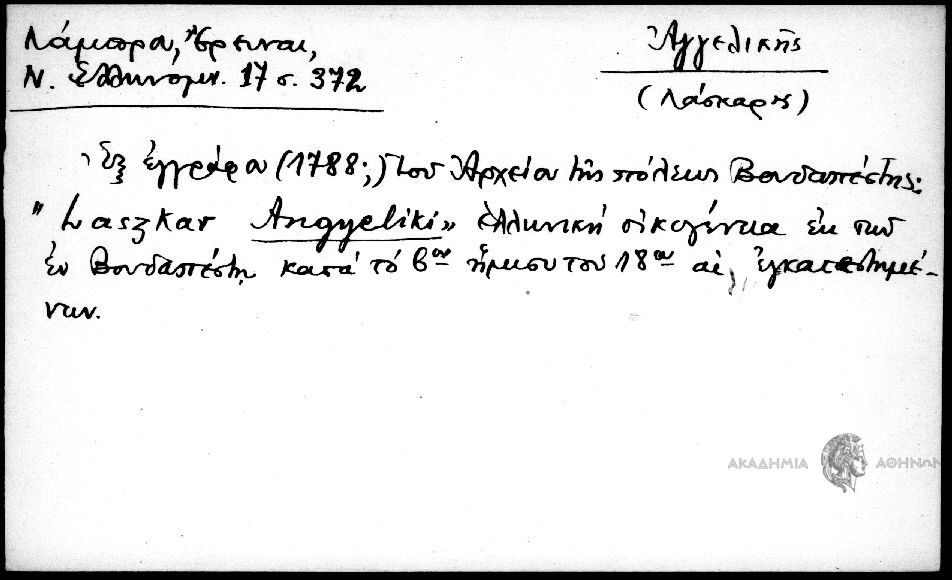 Λάμπρου, Ἔρευναι,
Ν. Ἑλληνομν. 17 σ. 372
Ἀγγελικῆς
(Λάσκαρης)
Ἐξ ἐγγράφου (1788;) τοῦ Ἀρχείου τῆς πόλεως Βουδαπέστης:
"Laszkar Angyeliki" ἑλληνικὴ οἰκογένεια ἐκ τῶν
ἐν Βουδαπέστῃ κατὰ τὸ βον ἥμισυ τοῦ 18ου αἰ. ἐγκατεστημέ-
νων.
ΑΚΑΔΗΜΙΑ ΑΘΗΝΩΝ